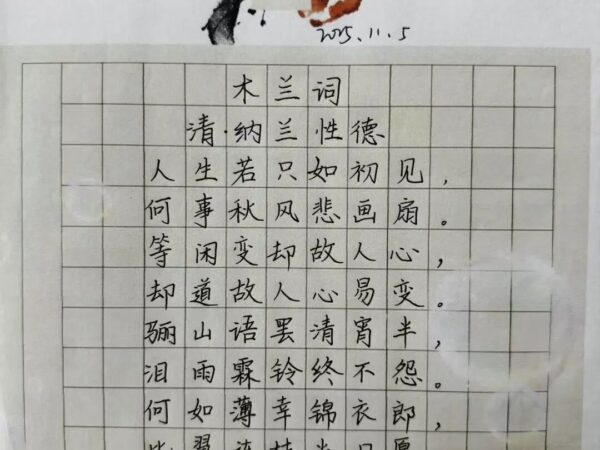 2025.11.5
木兰词
清·纳兰性德
人生若只如初见，
何事秋风悲画扇。
等闲变却故人心，
却道故人心易变。
骊山语罢清宵半，
泪雨霖铃终不怨。
何如薄幸锦衣郎，
比翼连枝当日愿